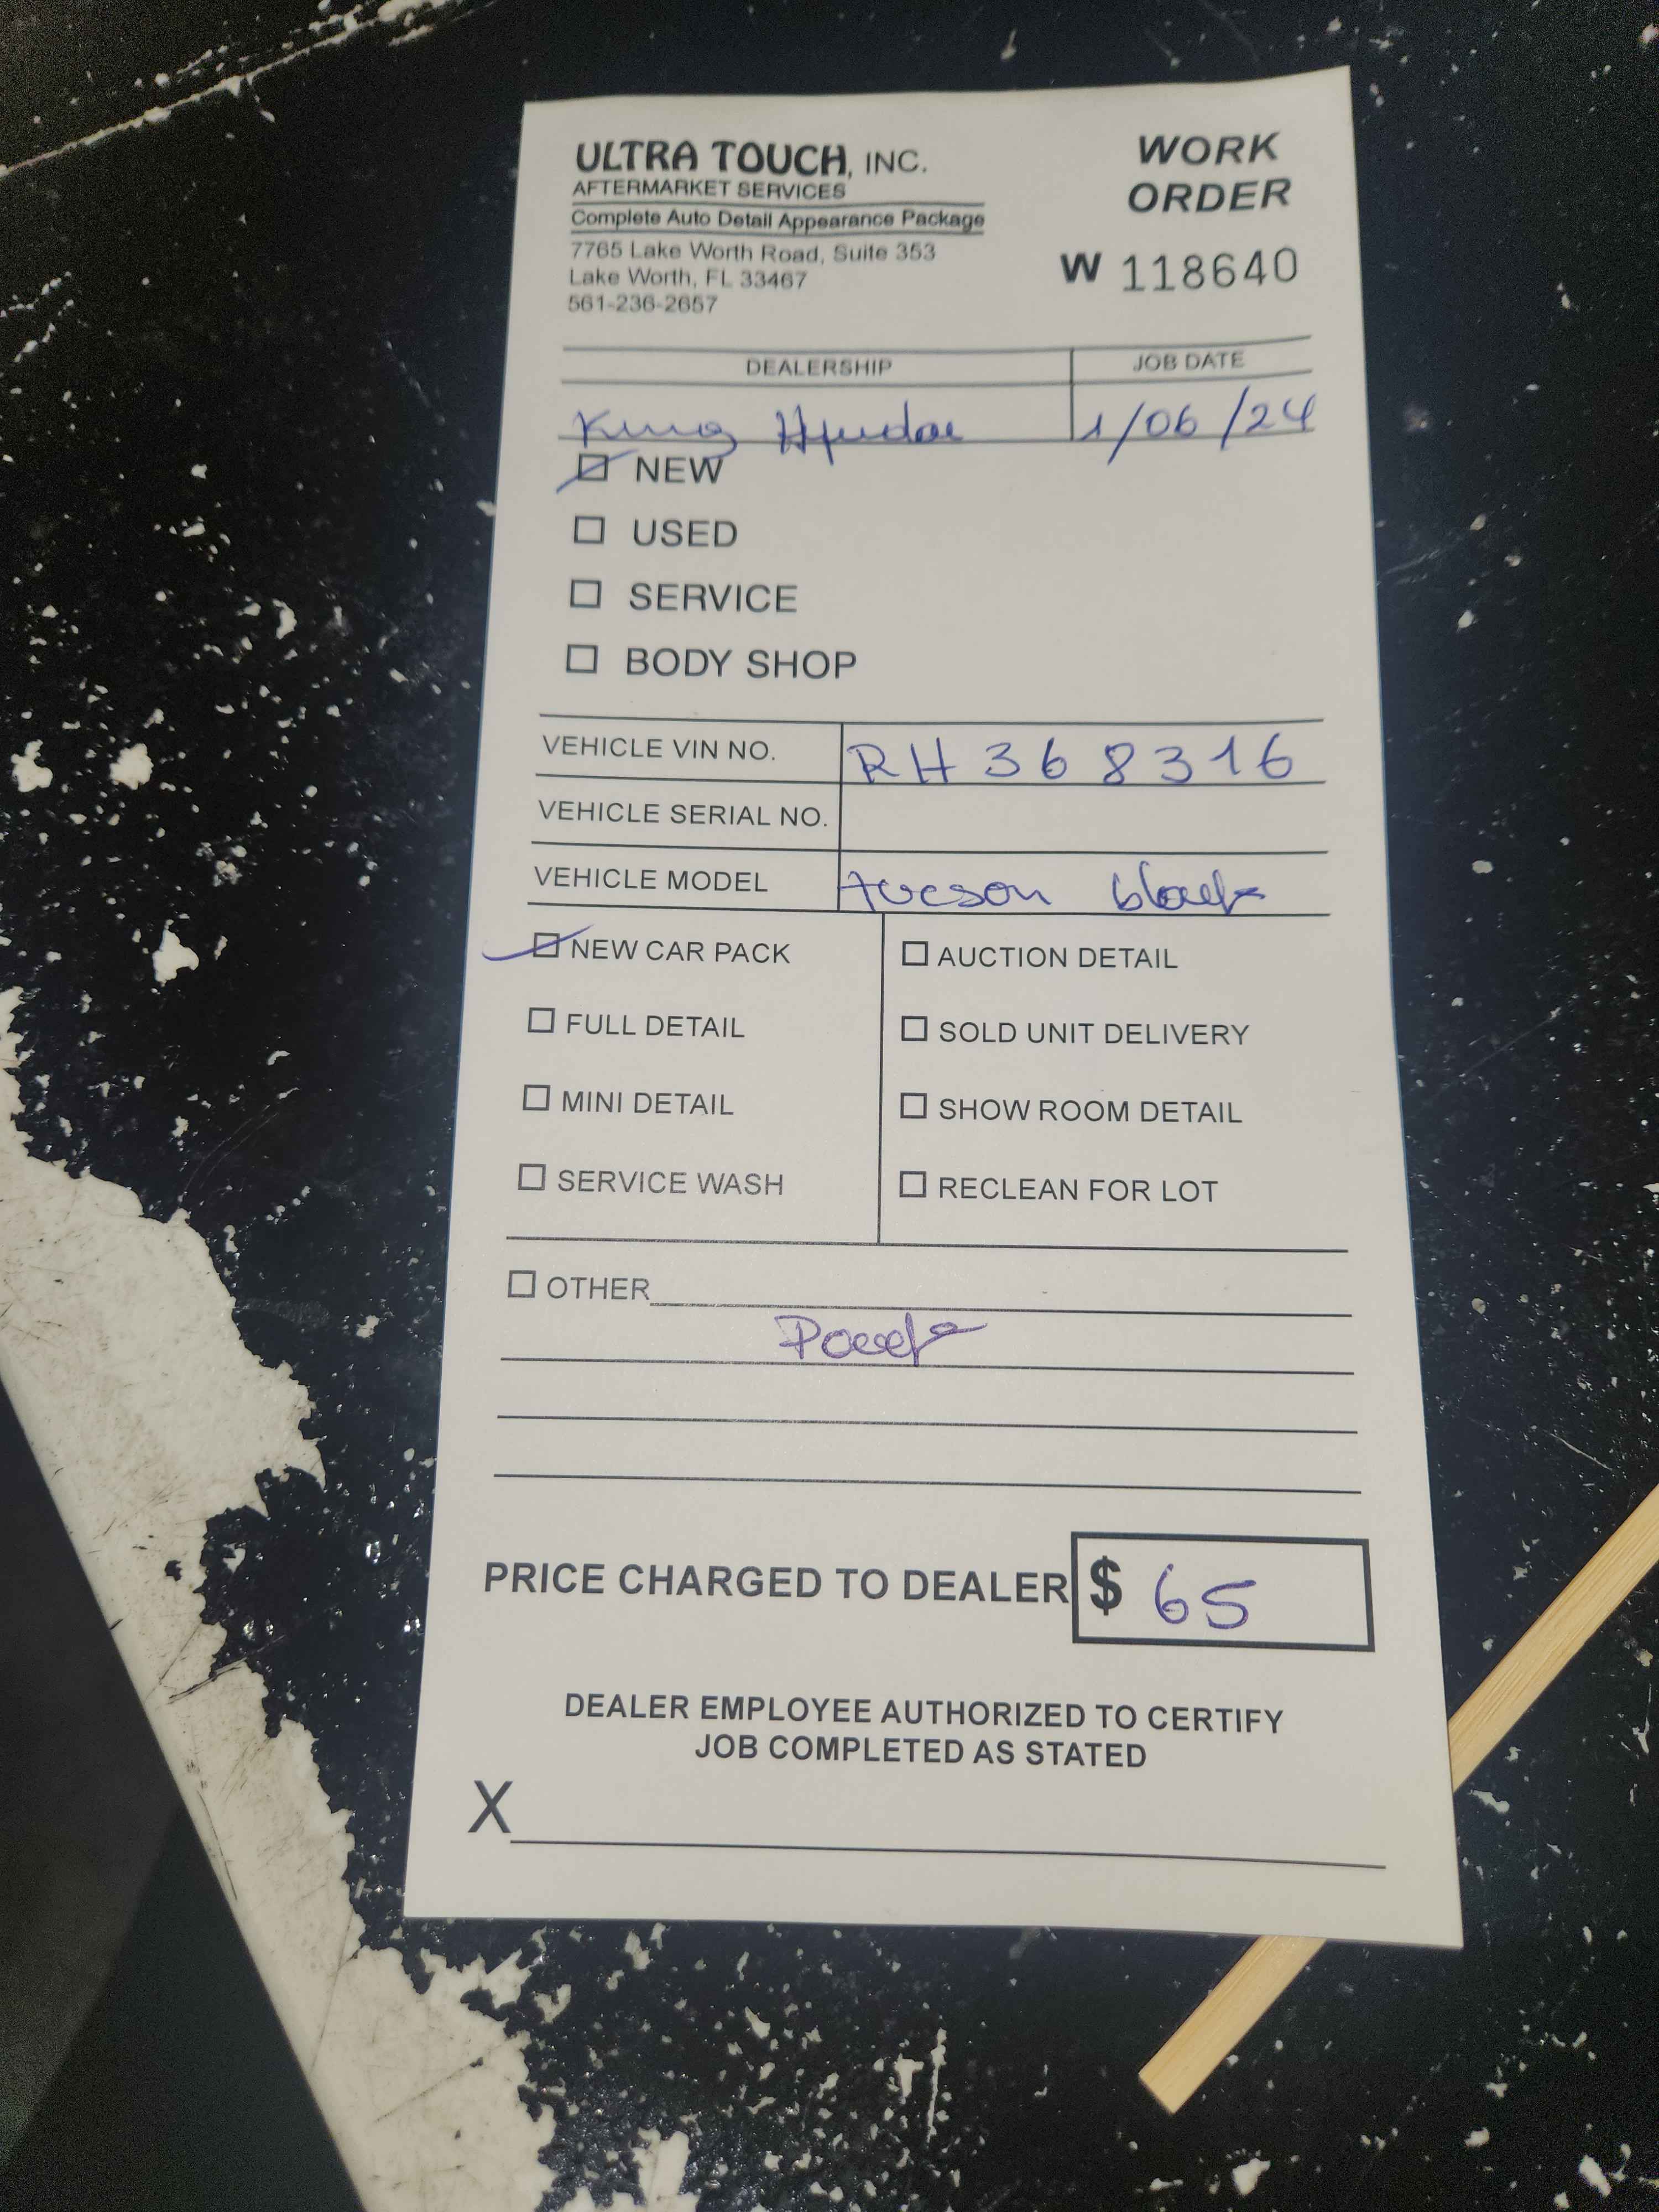 ULTRA TOUCH, INC.
AFTERMARKET SERVICES
Complete Auto Detail Appearance Package
7765 Lake Worth Road, Suite 353
Lake Worth, FL 33467
561-236-2657
WORK
ORDER
W 118640
DEALERSHIP JOB DATE
King 1/06/24
NEW
USED
SERVICE
BODY SHOP
VEHICLE VIN NO. RH368316
VEHICLE SERIAL NO.
VEHICLE MODEL tucson black
NEW CAR PACK
FULL DETAIL
MINI DETAIL
SERVICE WASH
AUCTION DETAIL
SOLD UNIT DELIVERY
SHOW ROOM DETAIL
RECLEAN FOR LOT
OTHER
PRICE CHARGED TO DEALER $ 65
DEALER EMPLOYEE AUTHORIZED TO CERTIFY
JOB COMPLETED AS STATED
X